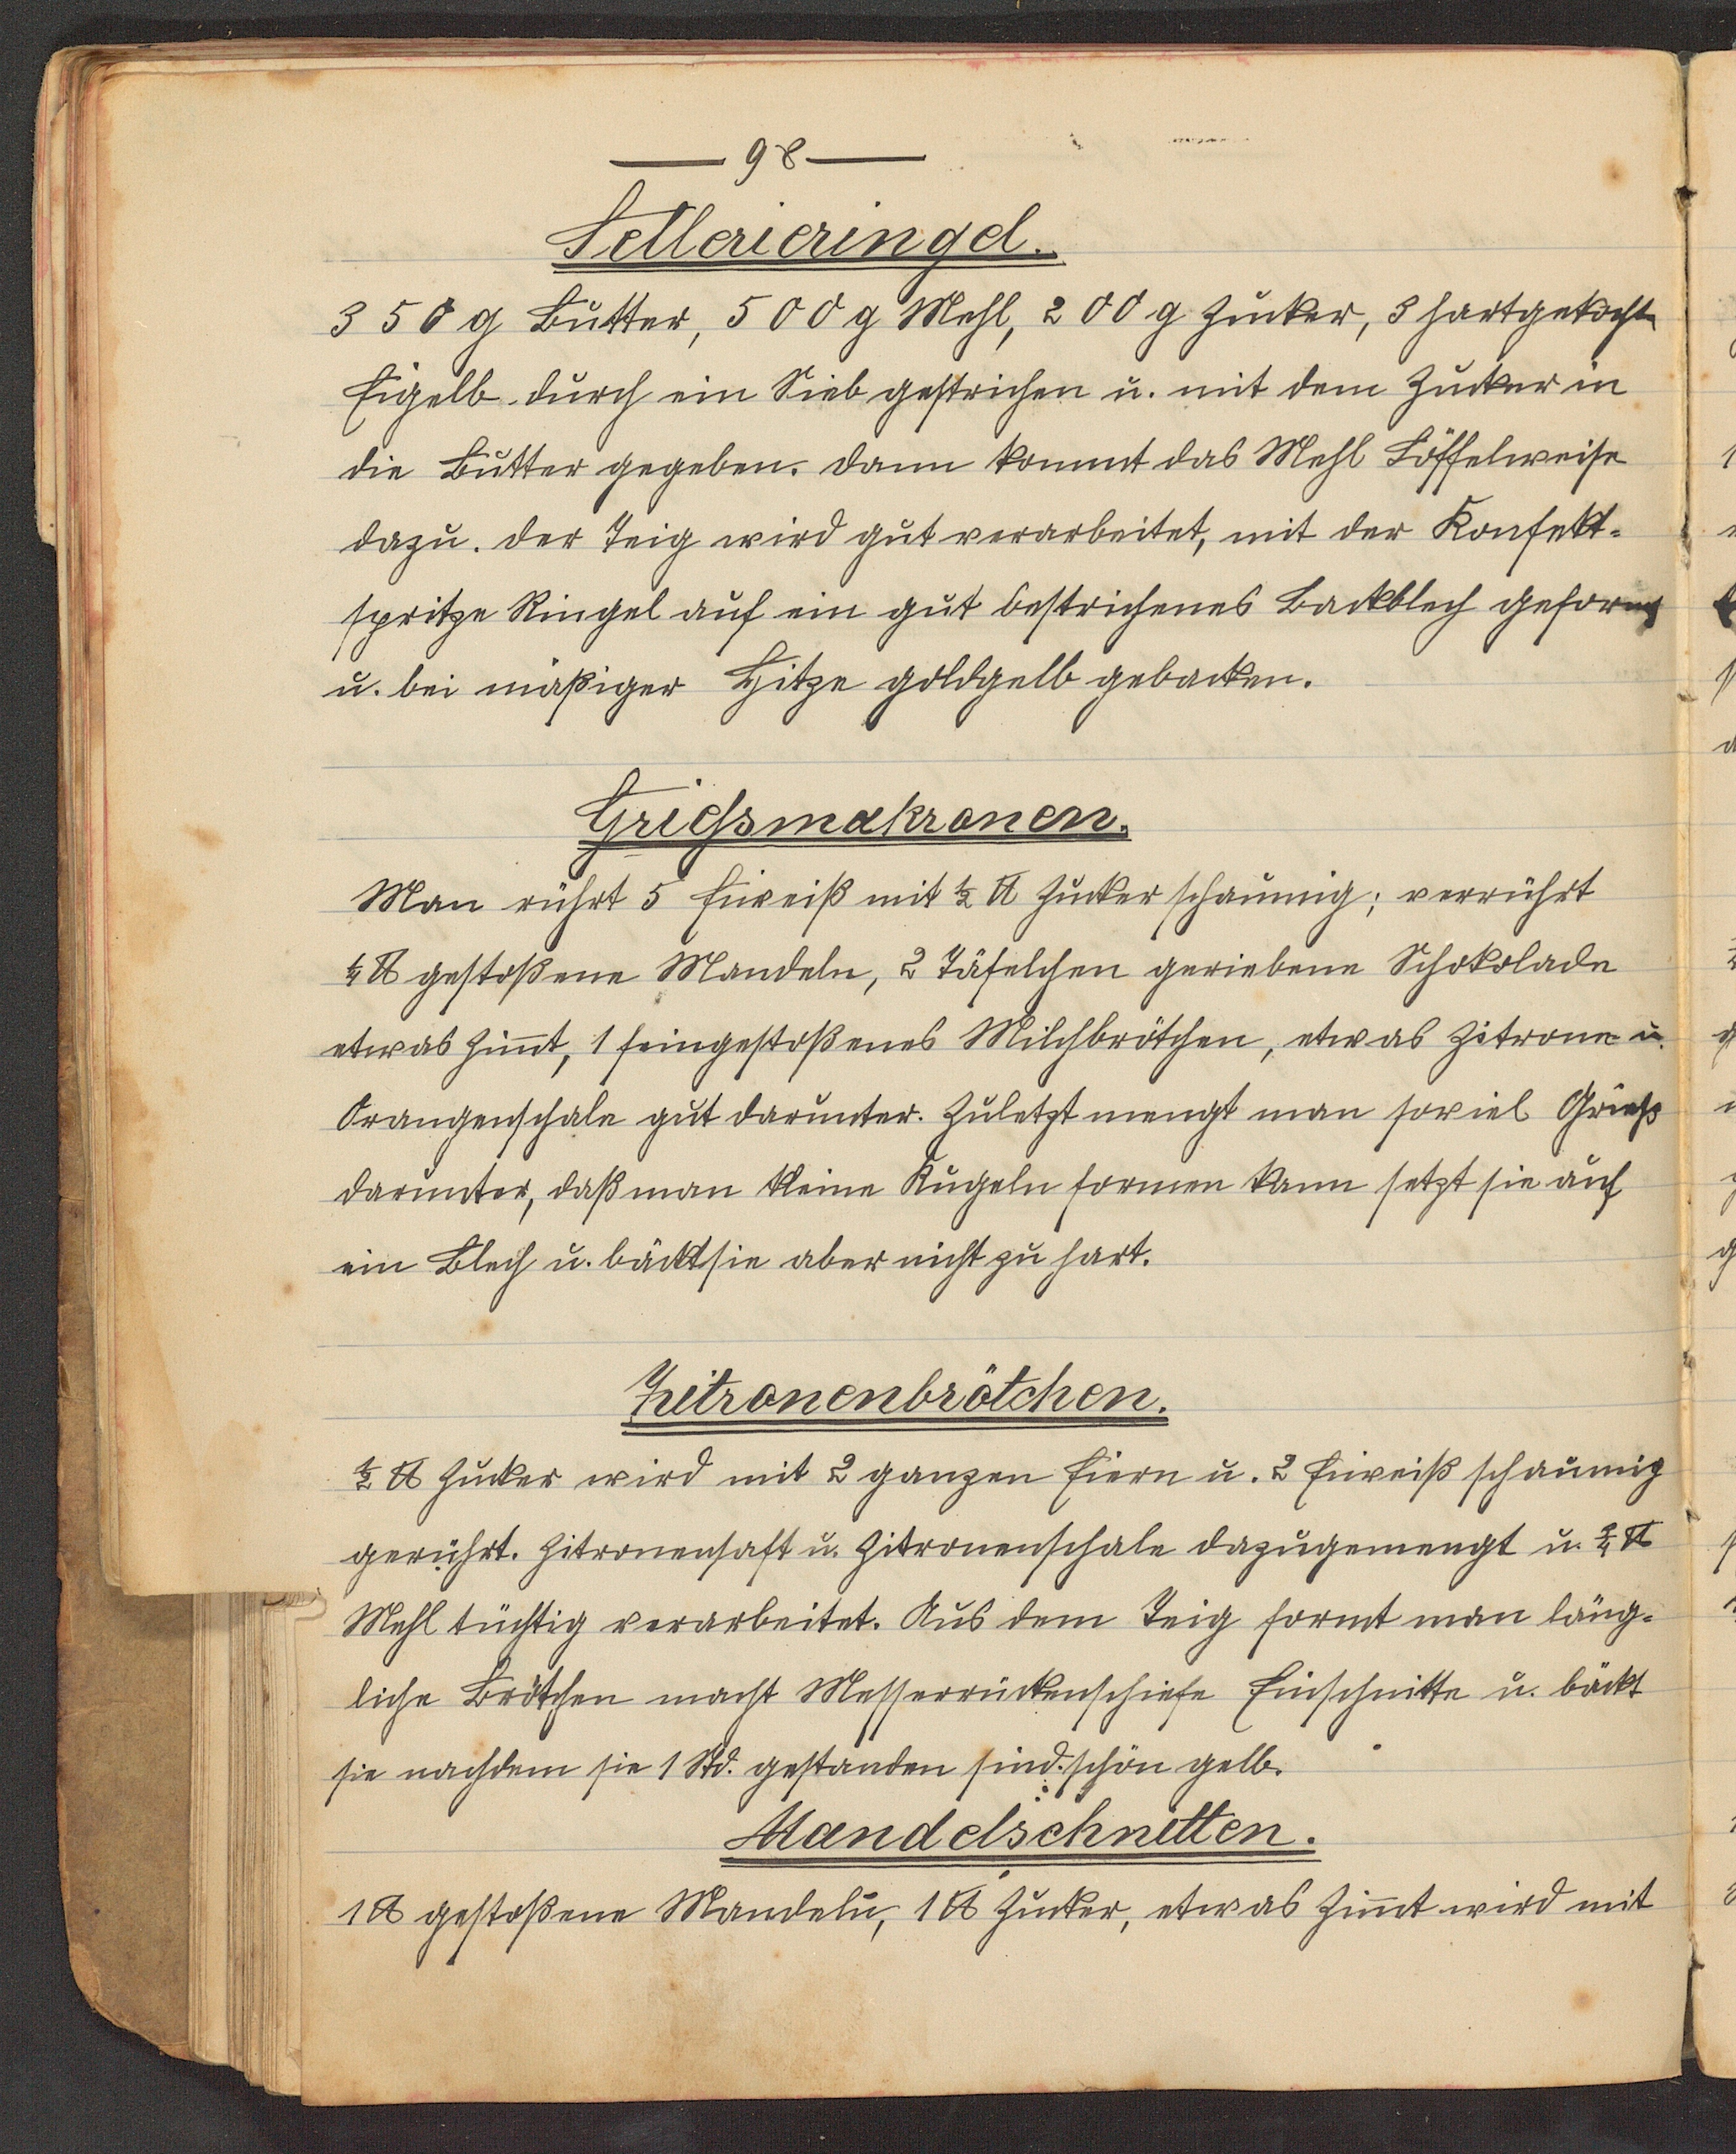 — 98 —
Sellerieringel.
350 g Butter, 500 g Mehl, 200 g Zucker, 3 hartgekochte
Eigelb durch ein Sieb gestrichen u. mit dem Zucker in
die Butter gegeben. dann kommt das Mehl Löffelweise
dazu. der Teig wird gut verarbeitet, mit der Konfekt-
spritze Ringel auf ein gut bestrichenes Backblech geformt
u. bei mäßiger Hitze goldgelb gebacken.
Griessmakronen.
Man rührt 5 Eiweiß mit ½ ℔ Zucker schaumig; verrührt
¼ ℔ gestoßene Mandeln, 2 Täfelchen geriebene Schokolade
etwas Zimt, 1 feingestoßenes Milchbrötchen, etwas Zitrone u.
Orangenschale gut darunter. Zuletzt mengt man soviel Grieß
darunter, daß man kleine Kugeln formen kann setzt sie auf
ein Blech u. bäckt sie aber nicht zu hart.
Zitronenbrötchen.
½ ℔ Zucker wird mit 2 ganzen Eiern u. 2 Eiweiß schaumig
gerührt. Zitronensaft u. Zitronenschale dazugemengt u. ¾ ℔
Mehl tüchtig verarbeitet. Aus dem Teig formt man läng-
liche Brötchen macht Messerrückenschiefe Einschnitte u. bäckt
sie nachdem sie 1 Std. gestanden sind. schön gelb.
Mandelschnitten.
1 ℔ gestoßene Mandeln, 1 ℔ Zucker, etwas Zimt wird mit